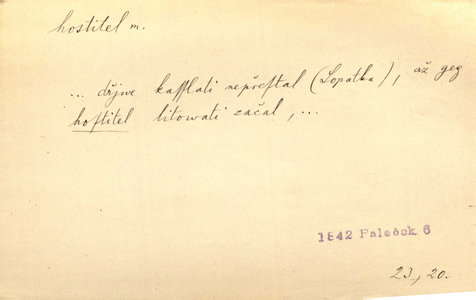 hostitel m.
... dřjwe kassslati nepřestal (Lopatka), až geg
hostitel litowati začal, ...
1842 Paleček 6
23, 20.